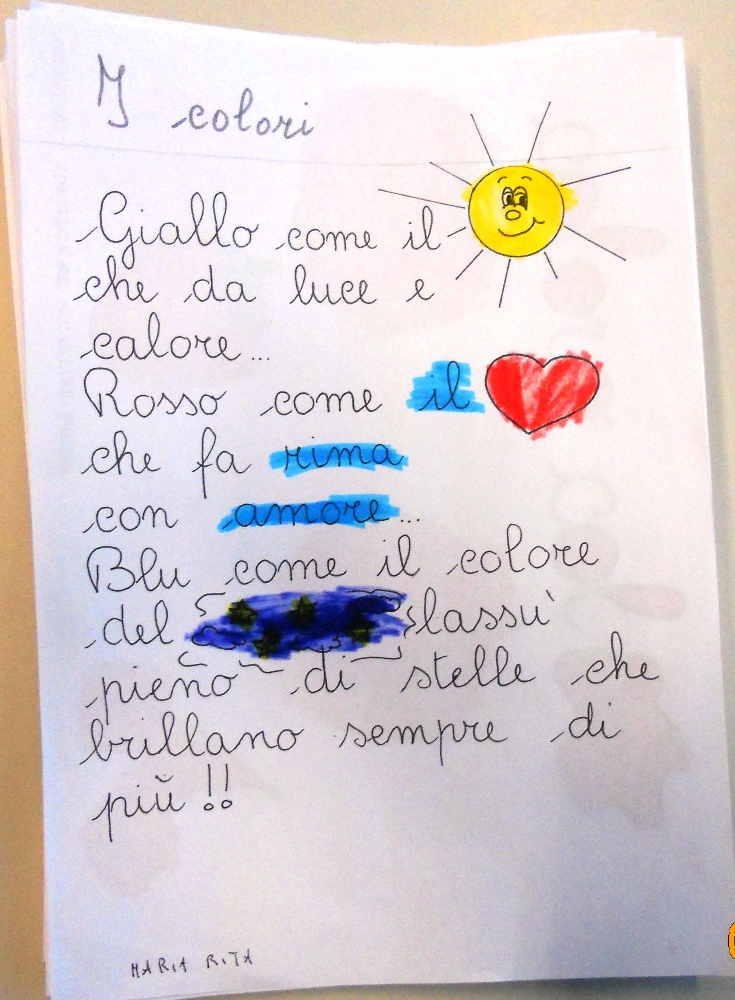 I colori
Giallo come il
che da luce e
calore...
Rosso come il
che fa rima
con amore...
Blu come il colore
del lassu'
pieno di stelle che
brillano sempre di
più!!
MARIA RITA